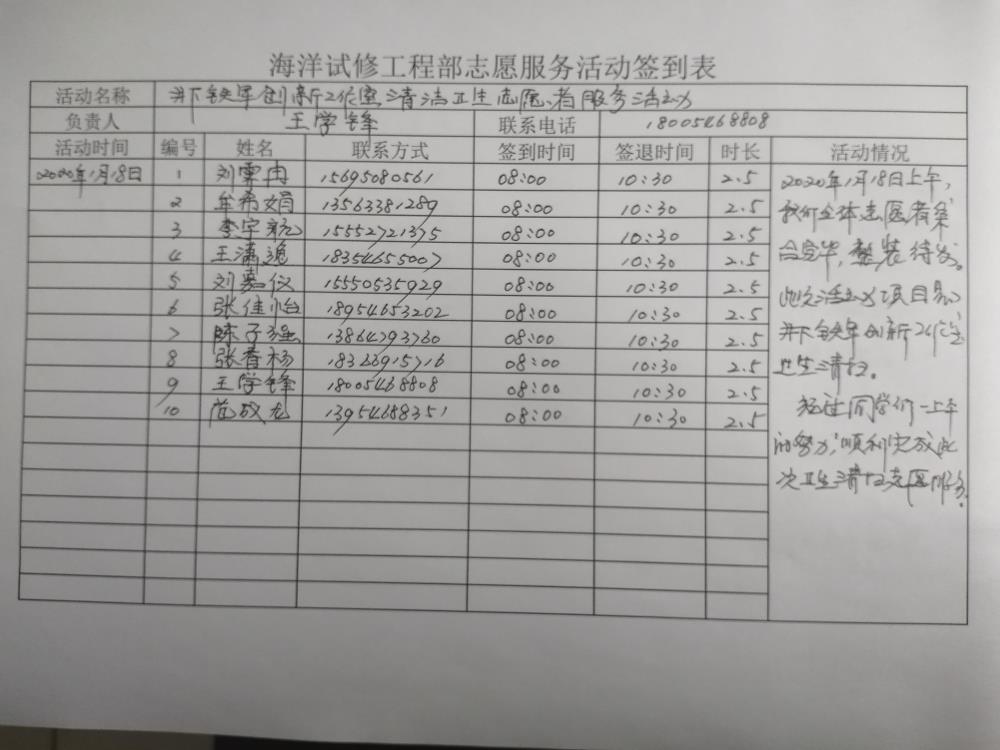 海洋试修工程部志愿服务活动签到表
活动名称 井下铁军创新工作室清洁卫生志愿者服务活动
负责人 王学锋 联系电话 18005468808
活动时间 编号 姓名 联系方式 签到时间 签退时间 时长 活动情况
2020年1月18日 1 刘霁冉 15695080561 08:00 10:30 2.5
2 牟希娟 13563381289 08:00 10:30 2.5
3 李宇航 15552721375 08:00 10:30 2.5
4 王潇逸 18354655007 08:00 10:30 2.5
5 刘嘉仪 15550535929 08:00 10:30 2.5
6 张佳怡 18954653202 08:00 10:30 2.5
7 陈子强 13864793760 08:00 10:30 2.5
8 张香杨 18366915716 08:00 10:30 2.5
9 王学锋 18005468808 08:00 10:30 2.5
10 范成龙 13954688351 08:00 10:30 2.5
2020年1月18日上午,
我们全体志愿者集
合完毕,整装待发。
此次活动项目为
井下铁军创新工作室
卫生清扫。
经过同学们一上午
的努力,顺利完成此
次卫生清扫志愿服务.